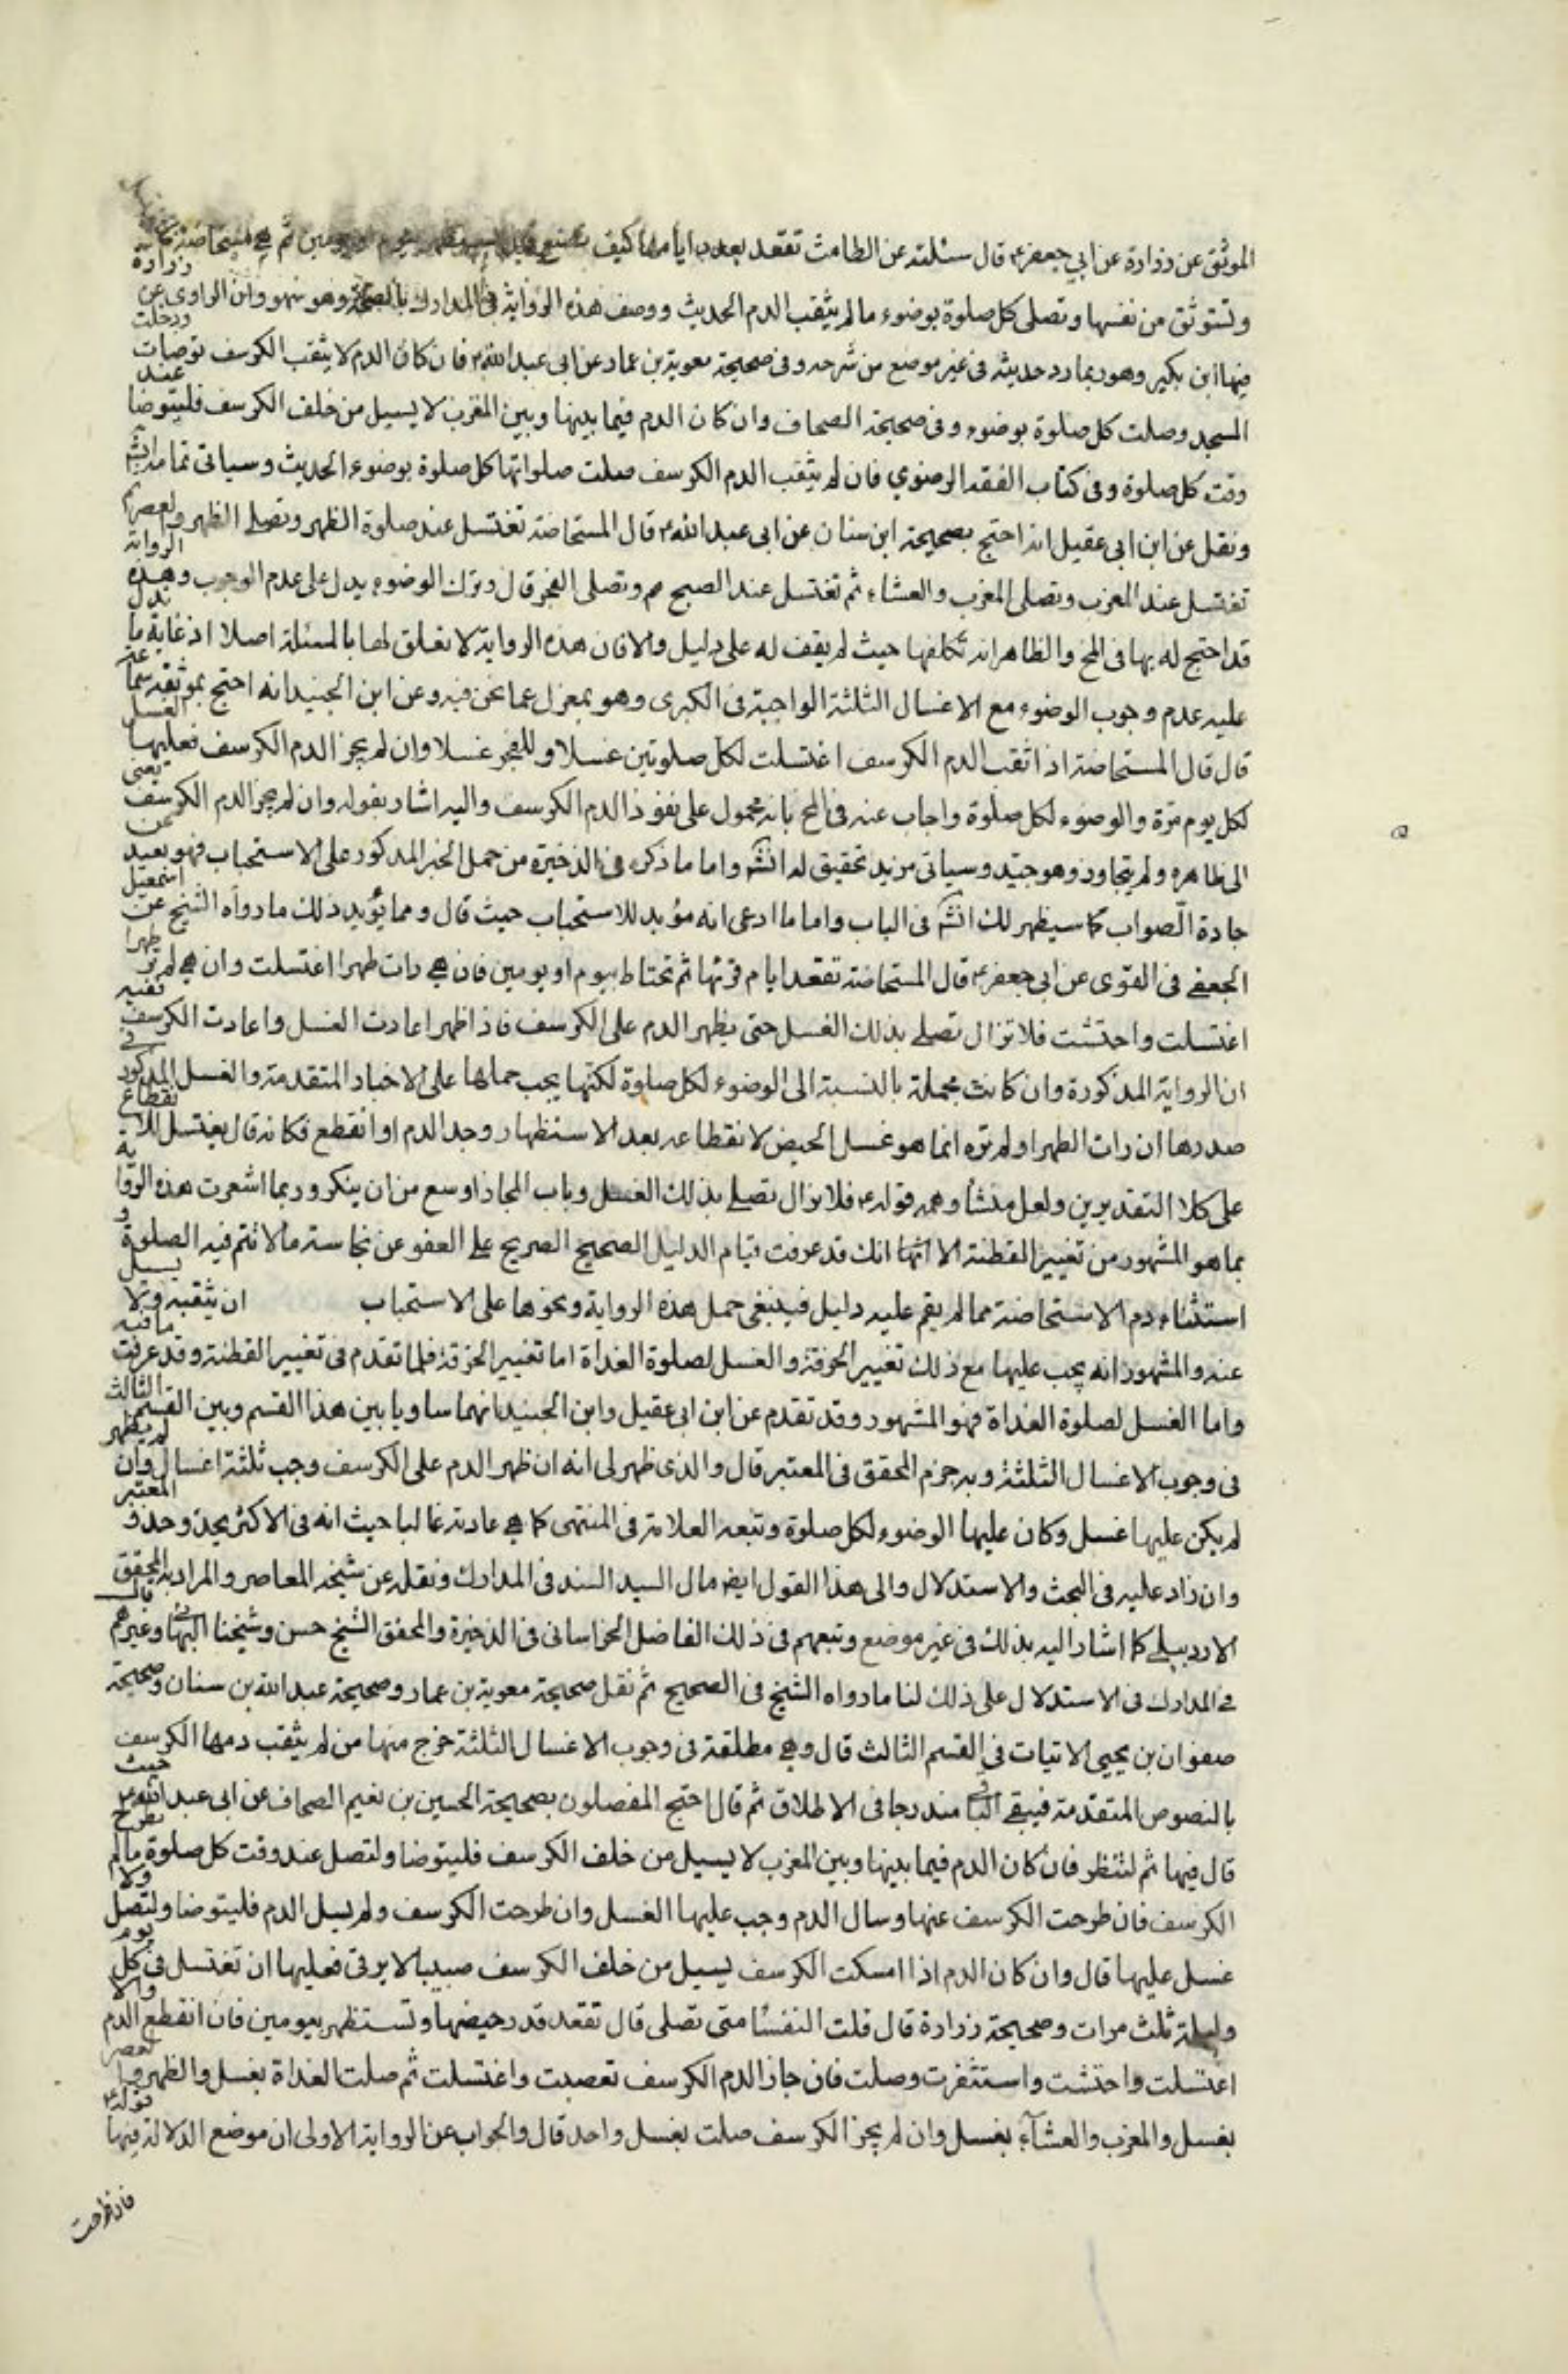 الموثق عن زرارة عن ابي جعفر ع قال سئلته عن الطامث تقعد بعدد ايامها كيف تصنع قال تستظهر بيوم او يومين ثم هي مستحاضة
وتستوثق من نفسها وتصلى كل صلوة بوضوء ما لم يثقب الدم الحديث ووصف هذه الرواية في المدارك بالصحة وهو سهو وان الراوى عن زرارة
فيها ابن بكير وهو ربما رد حديثه فى غير موضع من شرحه وفى صحيحة معوية بن عمار عن ابى عبد الله ع فان كان الدم لا يثقب الكرسف توضأت ودخلت
المسجد وصلت كل صلوة بوضوء وفى صحيحة الصحاف وان كان الدم فيما بينها وبين المغرب لا يسيل من خلف الكرسف فليتوضأ عند
وقت كل صلوة وفى كتاب الفقه الرضوي فان لم يثقب الدم الكرسف صلت صلواتها كل صلوة بوضوء الحديث وسياتى تمامه
ونقل عن ابن ابى عقيل انه احتج بصحيحة ابن سنان عن ابى عبد الله ع قال المستحاضة تغتسل عند صلوة الظهر وتصلي الظهر والعصر ثم
تغتسل عند المغرب وتصلى المغرب والعشاء ثم تغتسل عند الصبح وتصلى الفجر قال وترك الوضوء يدل على عدم الوجوب وهذه الرواية
قد احتج له بها فى المخ والظاهر انه تكلفها حيث لم يقف له على دليل والا فان هذه الرواية لا تعلق لها بالمسئلة اصلا اذ غاية ما تدل
عليه عدم وجوب الوضوء مع الاغسال الثلثة الواجبة فى الكبرى وهو بمعزل عما نحن فيه وعن ابن الجنيد انه احتج بموثقة سماعة
قال قال المستحاضة اذا ثقب الدم الكرسف اغتسلت لكل صلوتين غسلا وللفجر غسلا وان لم يجز الدم الكرسف فعليها الغسل
لكل يوم مرة والوضوء لكل صلوة واجاب عنه فى المخ بانه محمول على نفوذ الدم الكرسف واليه اشار بقوله وان لم يجز الدم الكرسف يعنى
الى ظاهره ولم يتجاوز وهو جيد وسياتى مزيد تحقيق له انش واما ما ذكره فى الذخيرة من حمل الخبر المذكور على الاستحباب فهو بعيد عن
جادة الصواب كما سيظهر لك انش فى الباب واما ما ادعى انه مؤيد للاستحباب حيث قال ومما يؤيد ذلك ما رواه الشيخ عن اسمعيل
الجعفي فى القوى عن ابى جعفر ع قال المستحاضة تقعد ايام قرئها ثم تحتاط بيوم او يومين فان هي رات طهرا اغتسلت وان هي لم تر طهرا
اغتسلت واحتشت فلا تزال تصلي بذلك الغسل حتى يظهر الدم على الكرسف فاذا ظهر اعادت الغسل واعادت الكرسف ففيه
ان الرواية المذكورة وان كانت مجملة بالنسبة الى الوضوء لكل صلوة لكنها يجب حملها على الاخبار المتقدمة والغسل المذكور في
صدرها ان رات الطهر او لم تره انما هو غسل الحيض لانقطاعه بعد الاستظهار وجد الدم او انقطع فكانه قال يغتسل للانقطاع
على كلا التقديرين ولعل منشأ وهمه قوله ع فلا تزال تصلي بذلك الغسل وباب المجاز اوسع من ان ينكر وربما اشعرت هذه الرواية
بما هو المشهور من تغيير القطنة الا انها انك قد عرفت قيام الدليل الصحيح الصريح علي العفو عن نجاسة ما لا تتم فيه الصلوة و
استثناء دم الاستحاضة مما لم يقم عليه دليل فينبغى حمل هذه الرواية ونحوها على الاستحباب ان يثقبه ولا يسل
عنه والمشهور انه يجب عليها مع ذلك تغيير الخرقة والغسل لصلوة الغداة اما تغيير الخرقة فلما تقدم فى تغيير القطنة وقد عرفت ما فيه
واما الغسل لصلوة الغداة فهو المشهور وقد تقدم عن ابن ابى عقيل وابن الجنيد انهما ساويا بين هذا القسم وبين القسم الثالث
فى وجوب الاغسال الثلثة وبه جزم المحقق فى المعتبر قال والذى ظهر لى انه ان ظهر الدم على الكرسف وجب ثلثة اغسال وان لم يظهر
لم يكن عليها غسل وكان عليها الوضوء لكل صلوة وتبعه العلامة فى المنتهى كما هي عادته غالبا حيث انه فى الاكثر يحذو حذو المعتبر
وان زاد عليه فى البحث والاستدلال والى هذا القول ايضا مال السيد السند فى المدارك ونقله عن شيخه المعاصر والمراد به المحقق
الاردبيلي كما اشار اليه بذلك فى غير موضع وتبعهم فى ذلك الفاضل الخراسانى فى الذخيرة والمحقق الشيخ حسن وشيخنا البهائي وغيرهم قال
في المدارك فى الاستدلال على ذلك لنا ما رواه الشيخ فى الصحيح ثم نقل صحيحة معوية بن عمار وصحيحة عبد الله بن سنان وصحيحة
صفوان بن يحيى الاتيات فى القسم الثالث قال وهي مطلقة فى وجوب الاغسال الثلثة خرج منها من لم يثقب دمها الكرسف
بالنصوص المتقدمة فيبقي الباقي مندرجا فى الاطلاق ثم قال احتج المفصلون بصحيحة الحسين بن نعيم الصحاف عن ابى عبد الله ع حيث
قال فيها ثم لتنظر فان كان الدم فيما بينها وبين المغرب لا يسيل من خلف الكرسف فليتوضا ولتصل عند وقت كل صلوة ما لم تطرح
الكرسف فان طرحت الكرسف عنها وسال الدم وجب عليها الغسل وان طرحت الكرسف ولم يسل الدم فليتوضا ولتصل ولا
غسل عليها قال وان كان الدم اذا امسكت الكرسف يسيل من خلف الكرسف صبيبا لا يرقى فعليها ان تغتسل فى كل يوم
وليلة ثلث مرات وصحيحة زرارة قال قلت النفسا متى تصلى قال تقعد قدر حيضها وتستظهر بيومين فان انقطع الدم والا
اغتسلت واحتشت واستثفرت وصلت فان جاز الدم الكرسف تعصبت واغتسلت ثم صلت الغداة بغسل والظهر والعصر
بغسل والمغرب والعشآء بغسل وان لم يجز الكرسف صلت بغسل واحد قال والجواب عن الرواية الاولى ان موضع الدلالة فيها قوله ع
فان طرحت